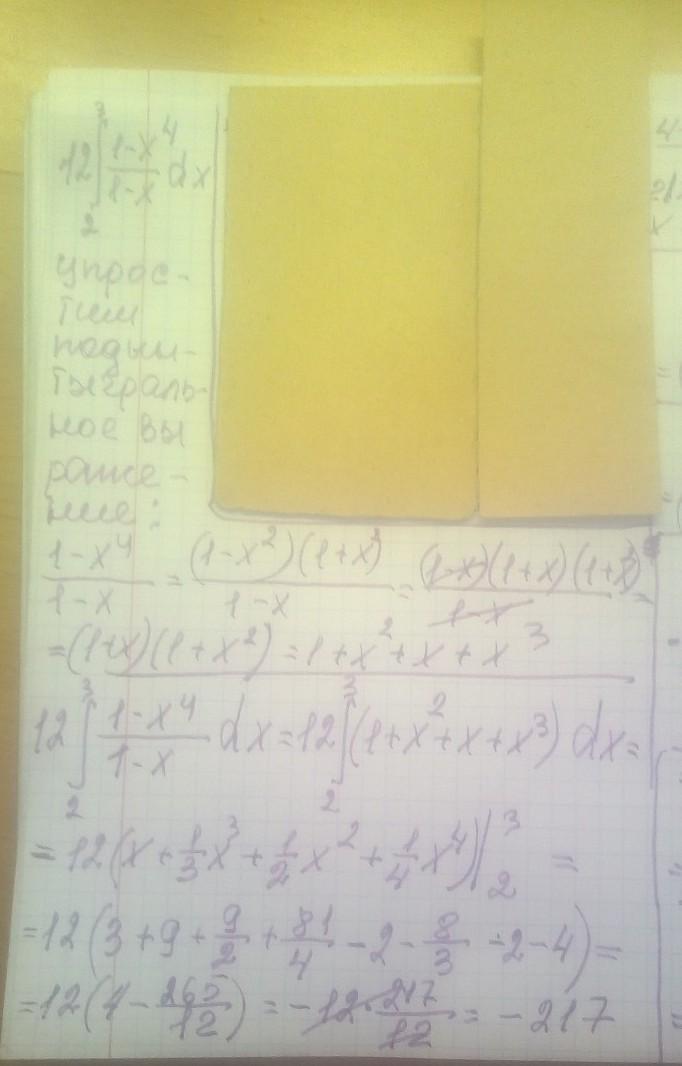 12 ∫₂³ (1-x⁴)/(1-x) dx
упрос-
тим
подын-
тыграль-
ное вы
раже-
ние:
(1-x⁴)/(1-x) = (1-x²)(1+x²)/(1-x) = (1-x)(1+x)(1+x²)/(1-x) =
= (1+x)(1+x²) = 1+x²+x+x³
12 ∫₂³ (1-x⁴)/(1-x) dx = 12 ∫₂³ (1+x²+x+x³) dx =
= 12(x + 1/3 x³ + 1/2 x² + 1/4 x⁴)|₂³ =
= 12(3 + 9 + 9/2 + 81/4 - 2 - 8/3 - 2 - 4) =
= 12(4 - 265/12) = -12 · 217/12 = -217